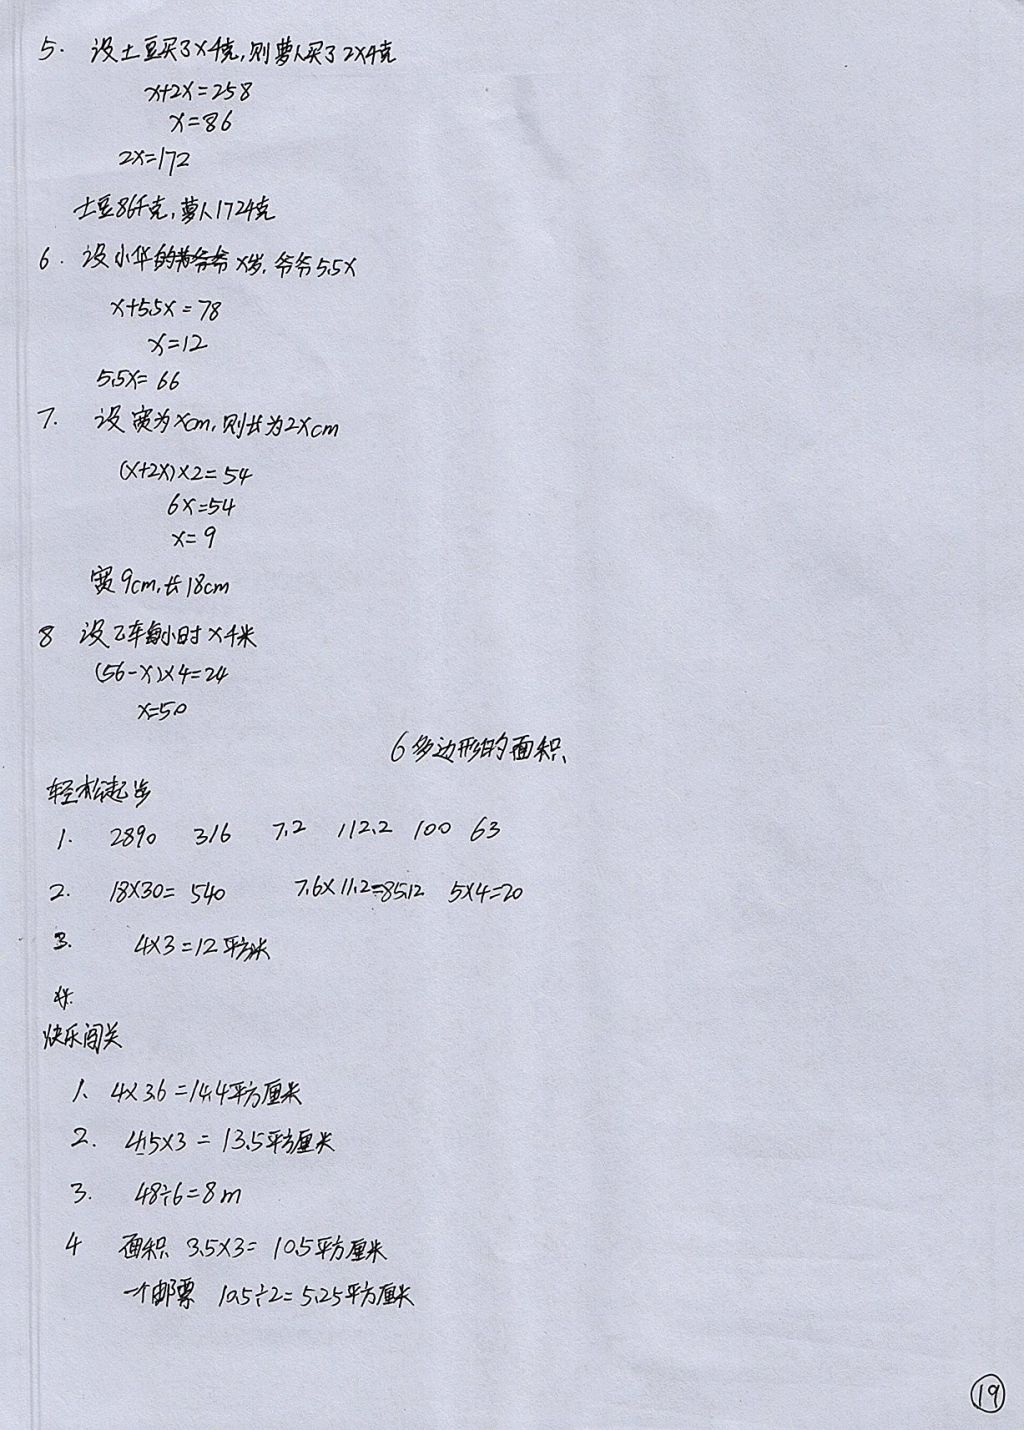 5. 设土豆买了x千克,则萝卜买了2x千克
x+2x=258
x=86
2x=172
土豆86千克,萝卜172千克
6. 设小华x岁,爷爷5.5x
x+5.5x=78
x=12
5.5x=66
7. 设宽为xcm,则长为2xcm
(x+2x)×2=54
6x=54
x=9
宽9cm,长18cm
8 设乙车每小时x千米
(56-x)×4=24
x=50
6多边形的面积
轻松起步
1. 2890 316 7.2 112.2 100 63
2. 18×30=540 7.6×11.2=85.12 5×4=20
3. 4×3=12平方米
快乐闯关
1、4×3.6=14.4平方厘米
2. 4.5×3=13.5平方厘米
3. 48÷6=8m
4 面积 3.5×3=10.5平方厘米
一个邮票 10.5÷2=5.25平方厘米
19